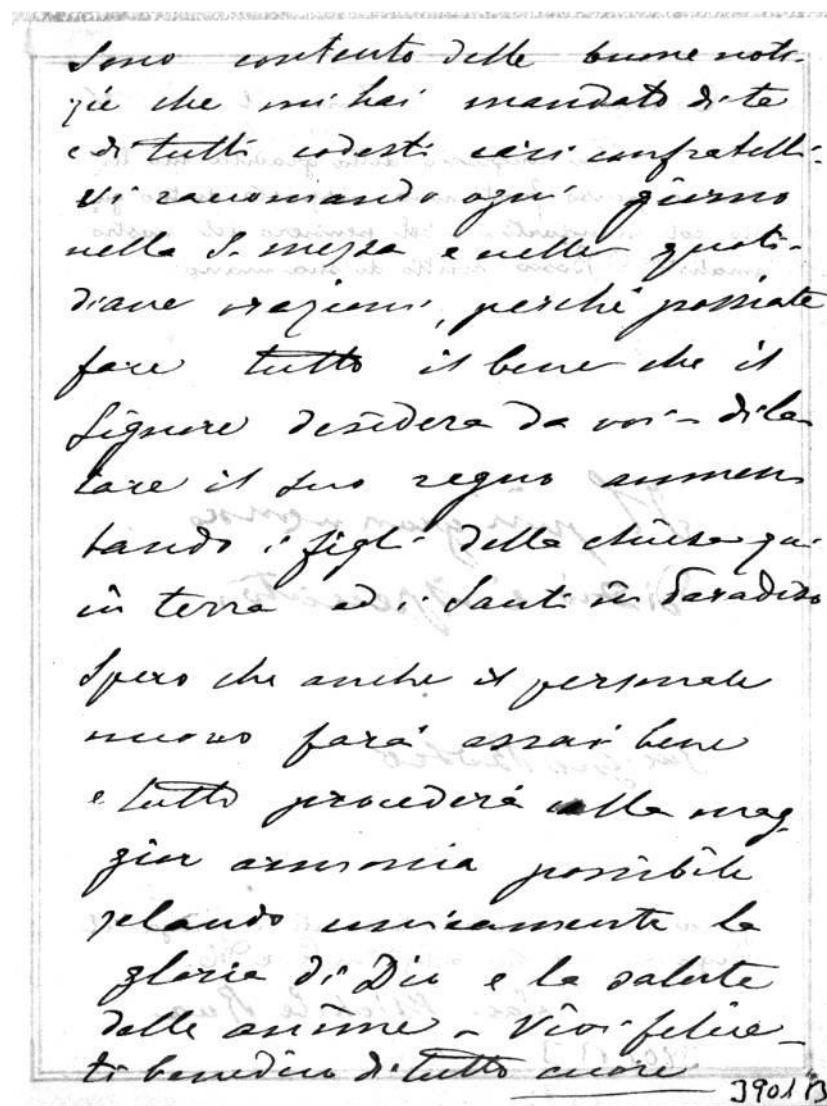 Sono contento delle buone noti-
zie che mi hai mandato di te
e di tutti codesti cari confratelli.
Vi raccomando ogni giorno
nella S. messa e nelle quoti-
diane orazioni, perché possiate
fare tutto il bene che il
Signore desidera da voi - dila
tare il suo regno aumen
tando i figli della chiesa qui
in terra ed i Santi in Paradiso
Spero che anche il personale
nuovo farà assai bene
e tutto procederà colla mag-
gior armonia possibile
zelando unicamente la
gloria di Dio e la salute
delle anime - Vivi felice -
ti benedico di tutto cuore
3901 B